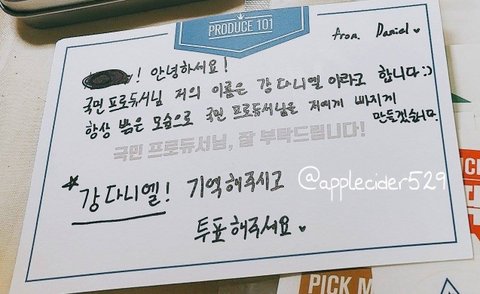 PRODUCE 101
From. Daniel ♥
! 안녕하세요!
국민 프로듀서님 저의 이름은 강다니엘이라고 합니다 :)
항상 밝은 모습으로 국민 프로듀서님을 저에게 빠지게
만들겠습니다.
국민 프로듀서님, 잘 부탁드립니다!
*강다니엘! 기억해주시고
@applecider529
투표해주세요 ♥
PICK M